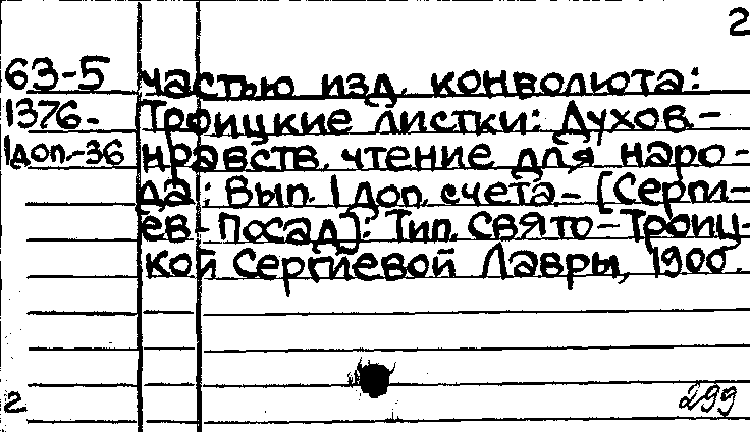 2
63-5 частью изд. конволюта:
1376- Троицкие листки: Духов.-
1доп.-36 нравств. чтение для наро-
да: Вып. 1 доп. счета- [Серги-
ев-Посад]: Тип. Свято-Троиц-
кой Сергиевой Лавры, 1900.
2 299